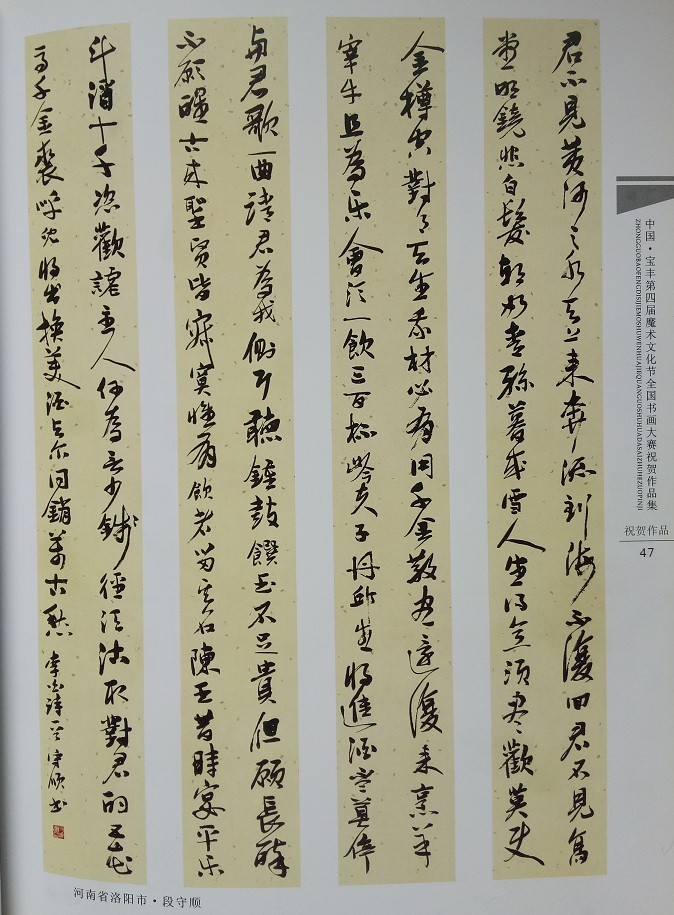 君不見黄河之水天上来奔流到海不復回君不見高
堂明鏡悲白髮朝如青絲暮成雪人生得意須盡歡莫使
金樽空對月天生我材必有用千金散盡還復来烹羊
宰牛且為乐會須一飲三百杯岑夫子丹邱生将進酒君莫停
与君歌一曲請君為我側耳聽鍾鼓饌玉不足貴但願長醉
不願醒古来聖贤皆寂寞惟有飲者留其名陳王昔時宴平乐
斗酒十千恣歡謔主人何為言少錢徑須沽取對君酌五花
馬千金裘呼兒将出換美酒与尔同銷萬古愁 李白詩一首 守顺书
中国·宝丰第四届魔术文化节全国书画大赛祝贺作品集
ZHONGGUOBAOFENGDISIJIEMOSHUWENHUAJIEQUANGUOSHUHUADASAIZHUHEZUOPINJI
祝贺作品
47
河南省洛阳市·段守顺